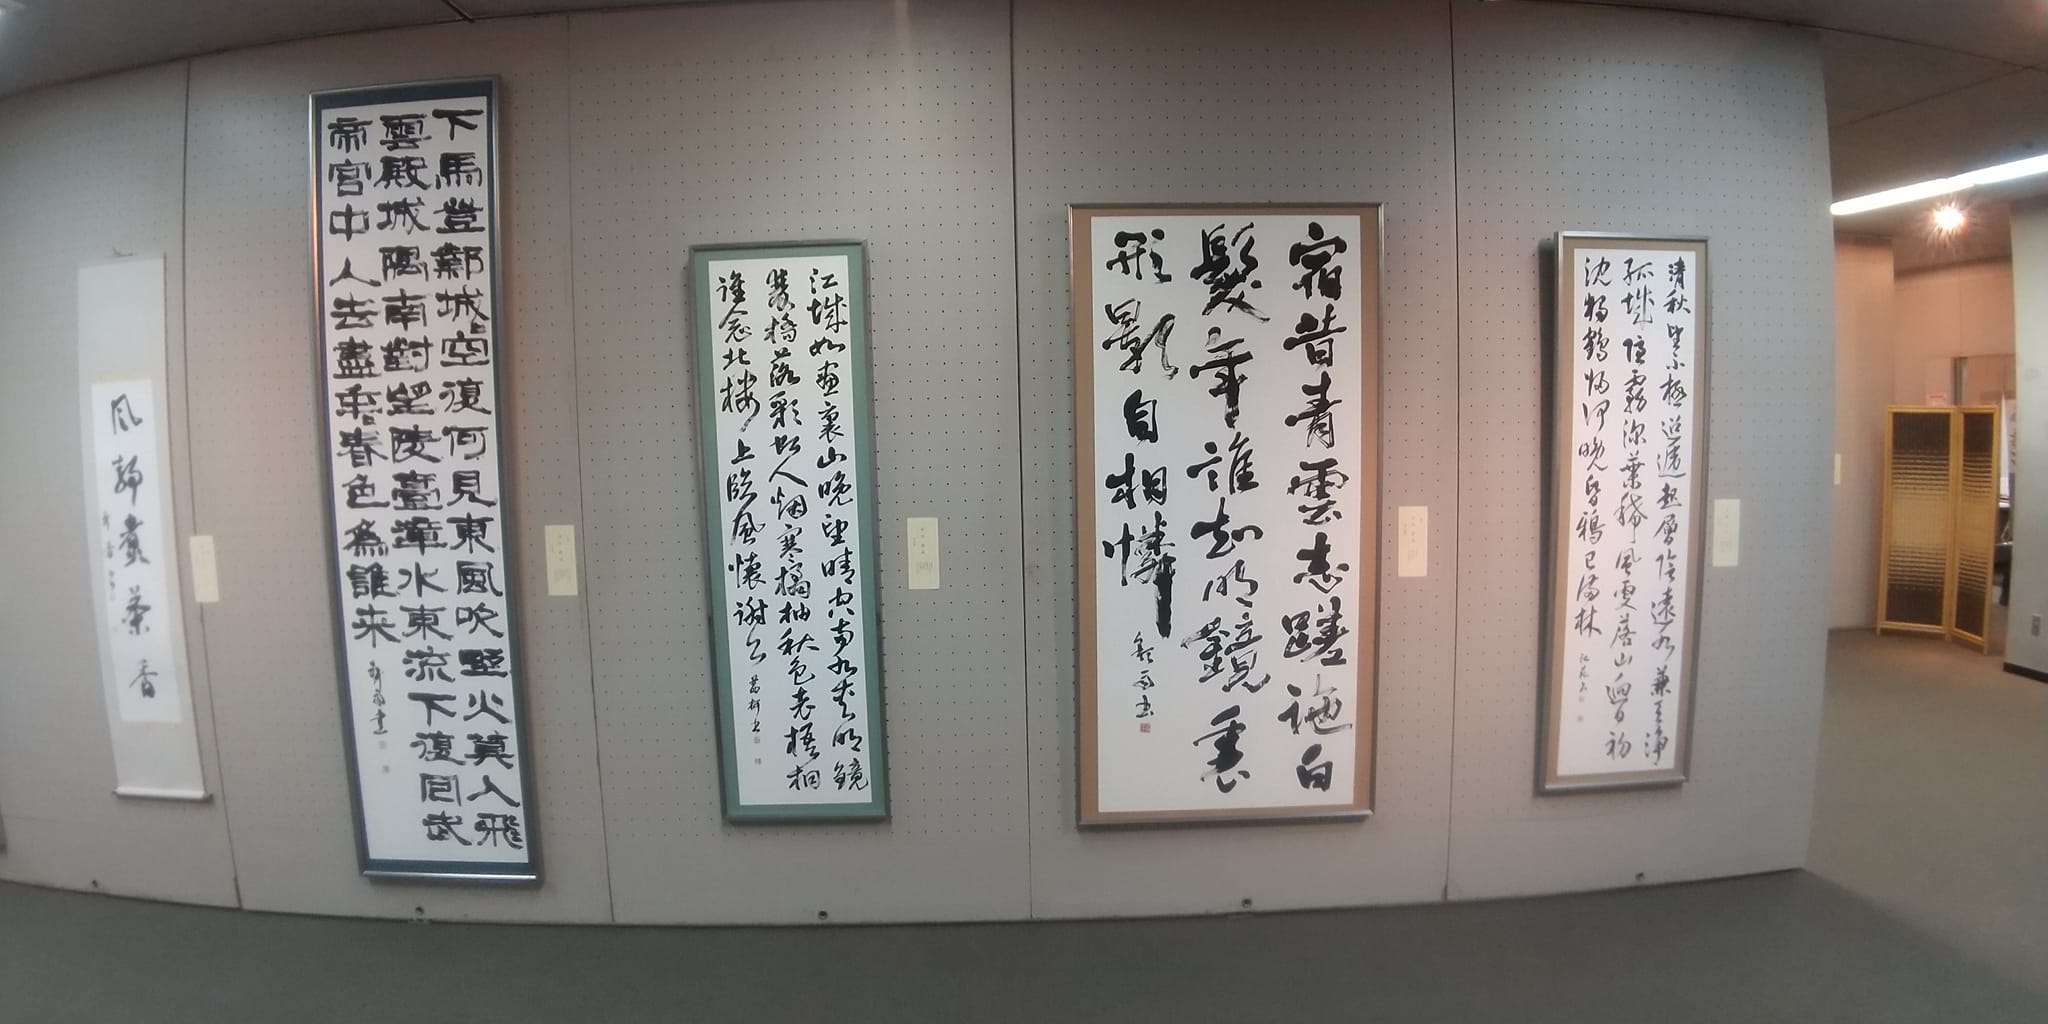 清秋望不極迢遞起層陰遠水兼天浄
孤城隠霧深葉稀風更落山迥日初
沈獨鶴帰何晩昏鴉已満林
宿昔青雲志蹉跎白
髪年誰知明鏡裏
形影自相憐
江城如畫裏山晩望晴空両水夾明鏡
雙橋落彩虹人烟寒橘柚秋色老梧桐
誰念北樓上臨風懐謝公
下馬登鄴城々空復何見東風吹野火莫入飛
雲殿城隅南對望陵臺漳水東流不復回武
帝宮中人去盡年々春色為誰来
風静煮茶香